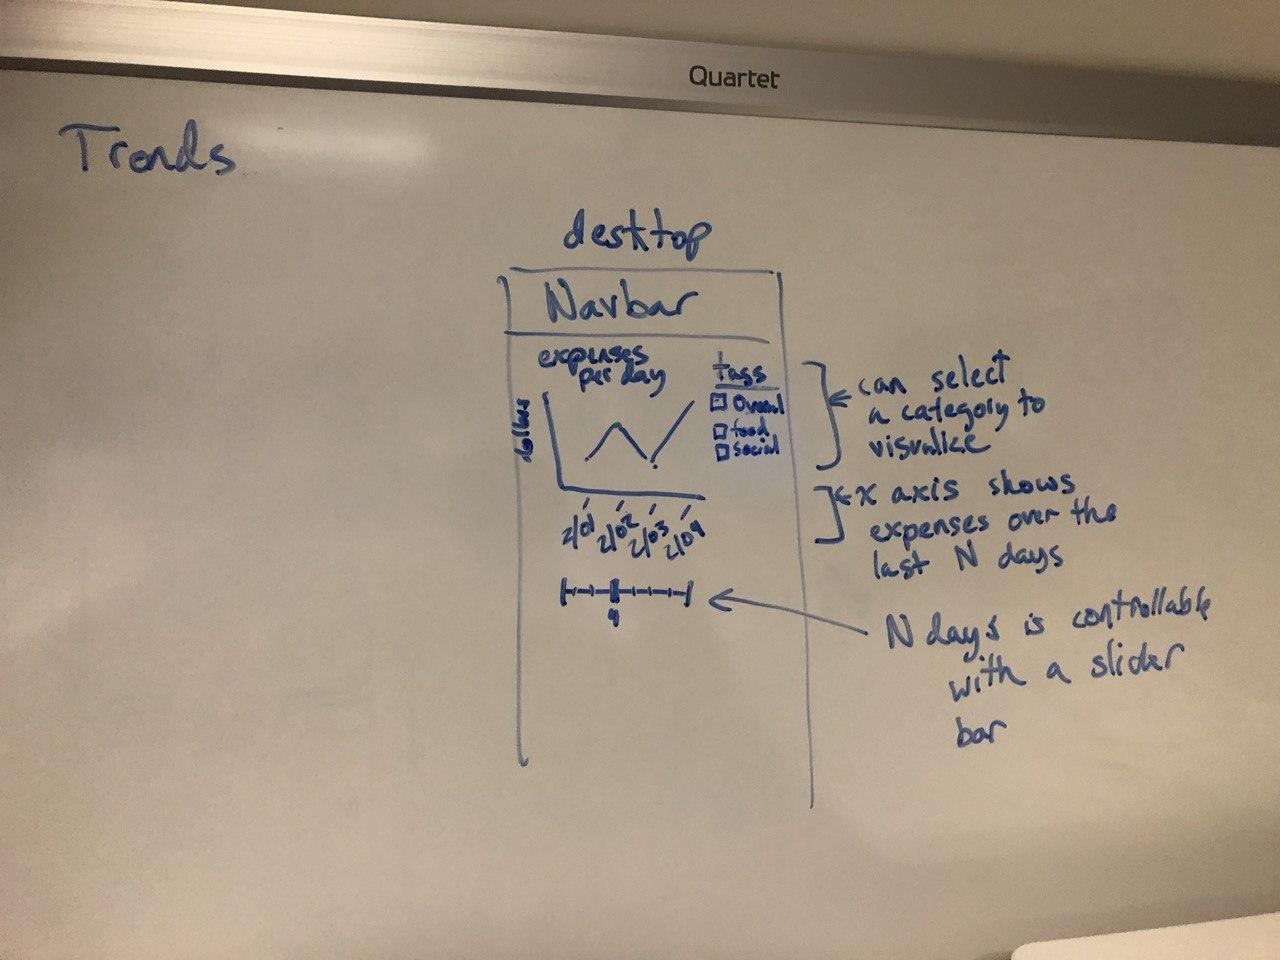 Quartet
Trends
desktop
Navbar
expenses
per day
tags
Overall
food
social
dollars
2/01 2/02 2/03 2/04
4
can select
a category to
visualize
x axis shows
expenses over the
last N days
N days is controllable
with a slider
bar